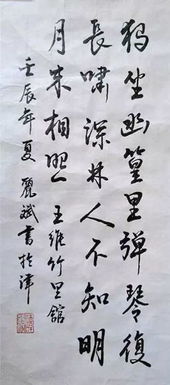 獨坐幽篁里彈琴復
長嘯深林人不知明
月来相照 王維竹里館
壬辰年夏 麗斌書於津